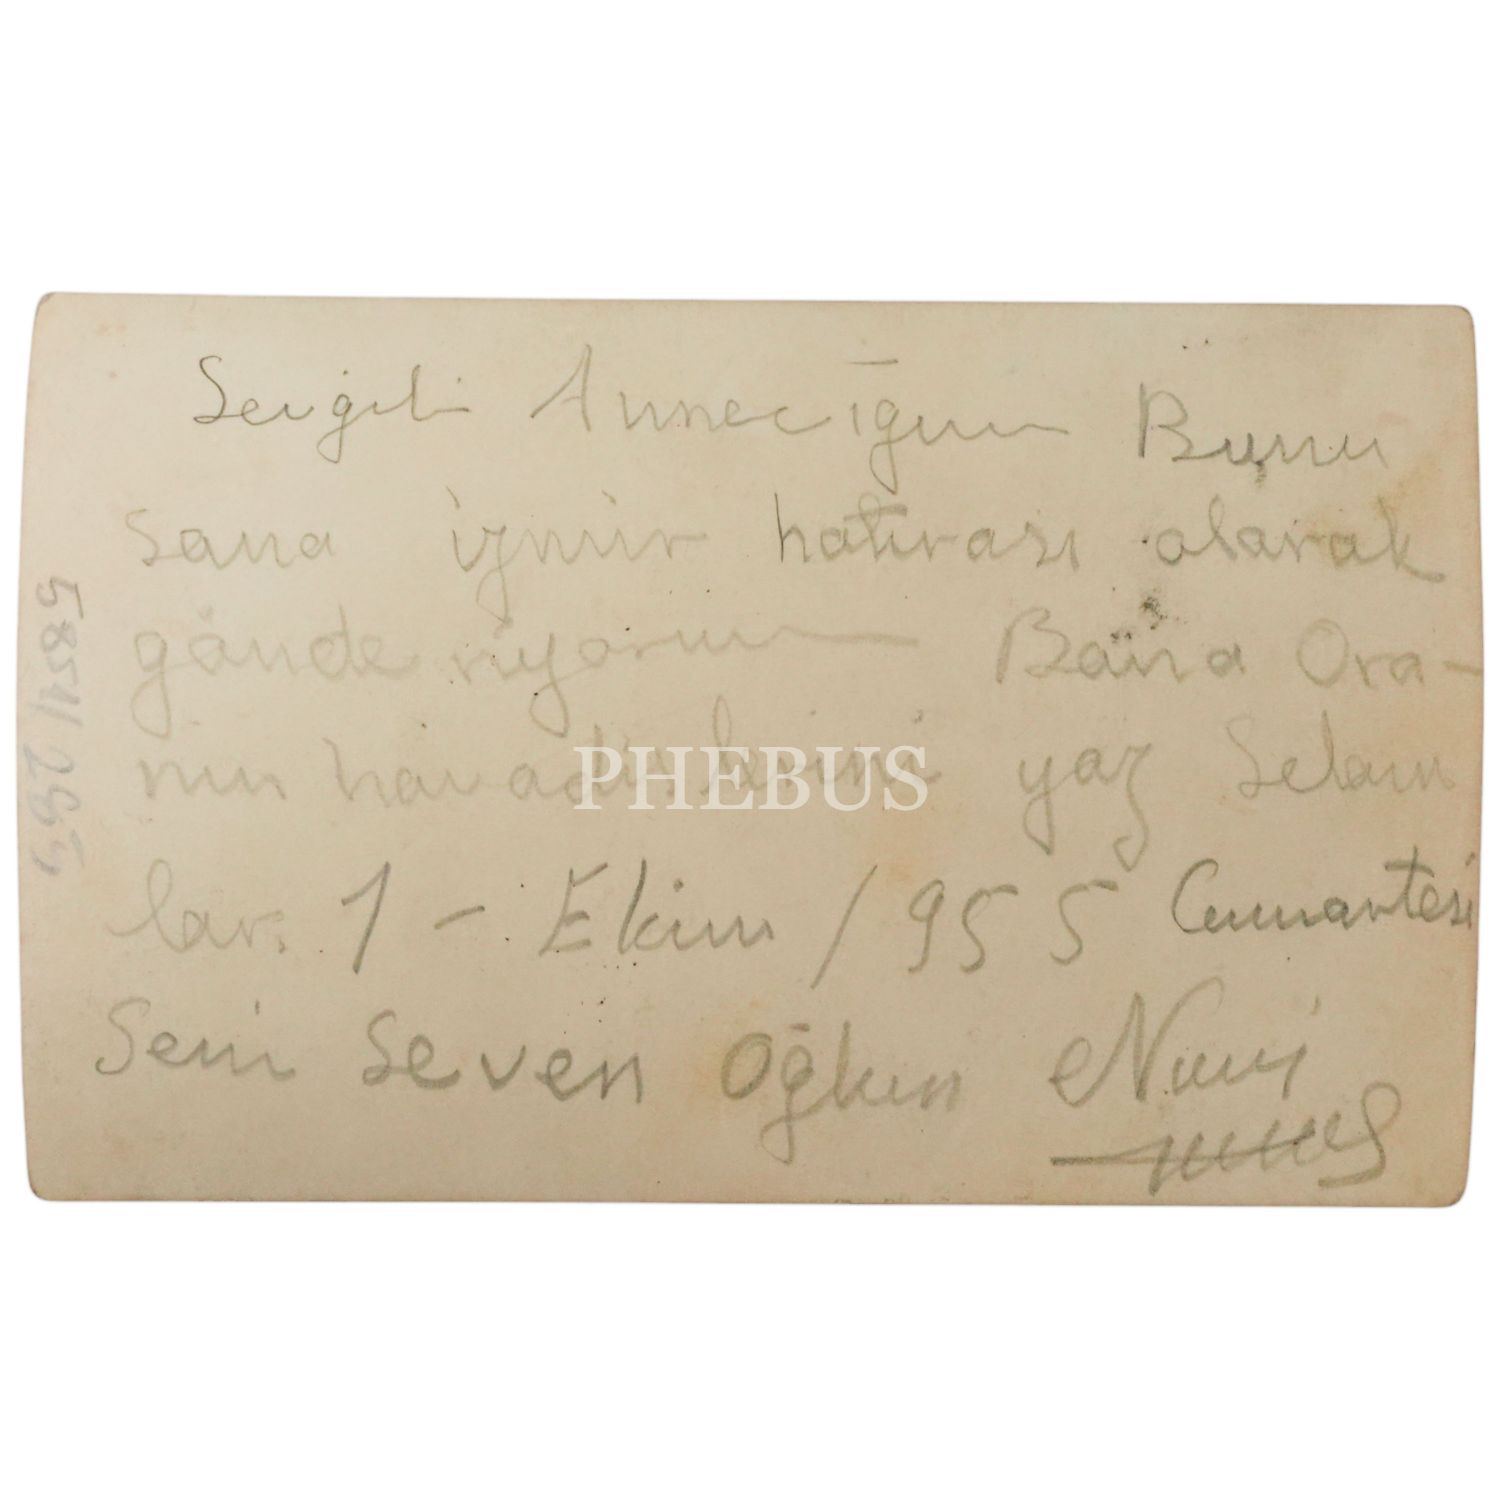 Sevgili Anneciğim Bunu
sana izmir hatırası olarak
gönderiyorum Bana Ora-
nın havadislerini yaz Selam
lar. 1 - Ekim / 955 Cumartesi
Seni Seven Oğlun Nuri
PHEBUS